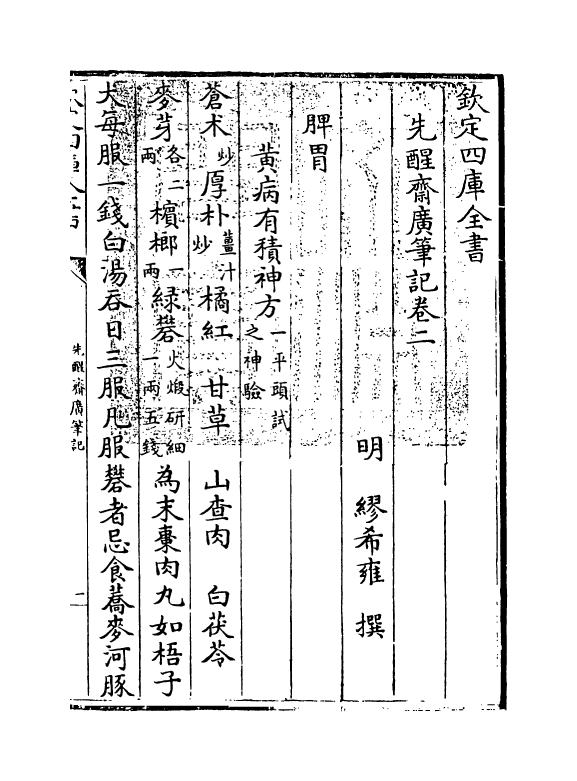 欽定四庫全書
先醒齋廣筆記卷二
明 繆希雍 撰
脾胃
黄病有積神方一平頭試之神驗
蒼术炒 厚朴薑汁炒 橘紅 甘草 山查肉 白茯苓
麥芽各二兩 檳榔一兩 緑礬火煅研細一兩五錢 為末棗肉丸如梧子
大每服一錢白湯吞日三服凢服礬者忌食蕎麥河豚
先醒齋廣筆記
二